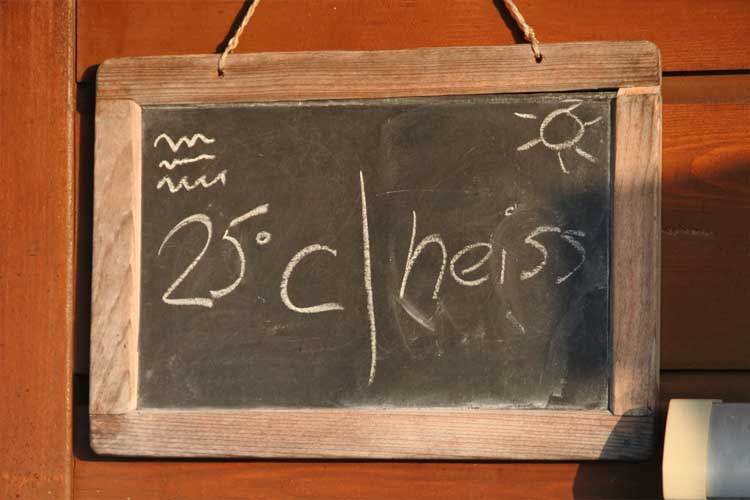 25°C | heiss